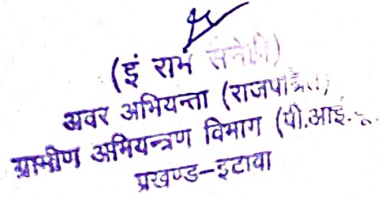 (इं राम
अवर अभियन्ता (राजपत्रित)
ग्रामीण अभियन्त्रण विभाग (पी.आई.
प्रखण्ड-इटावा